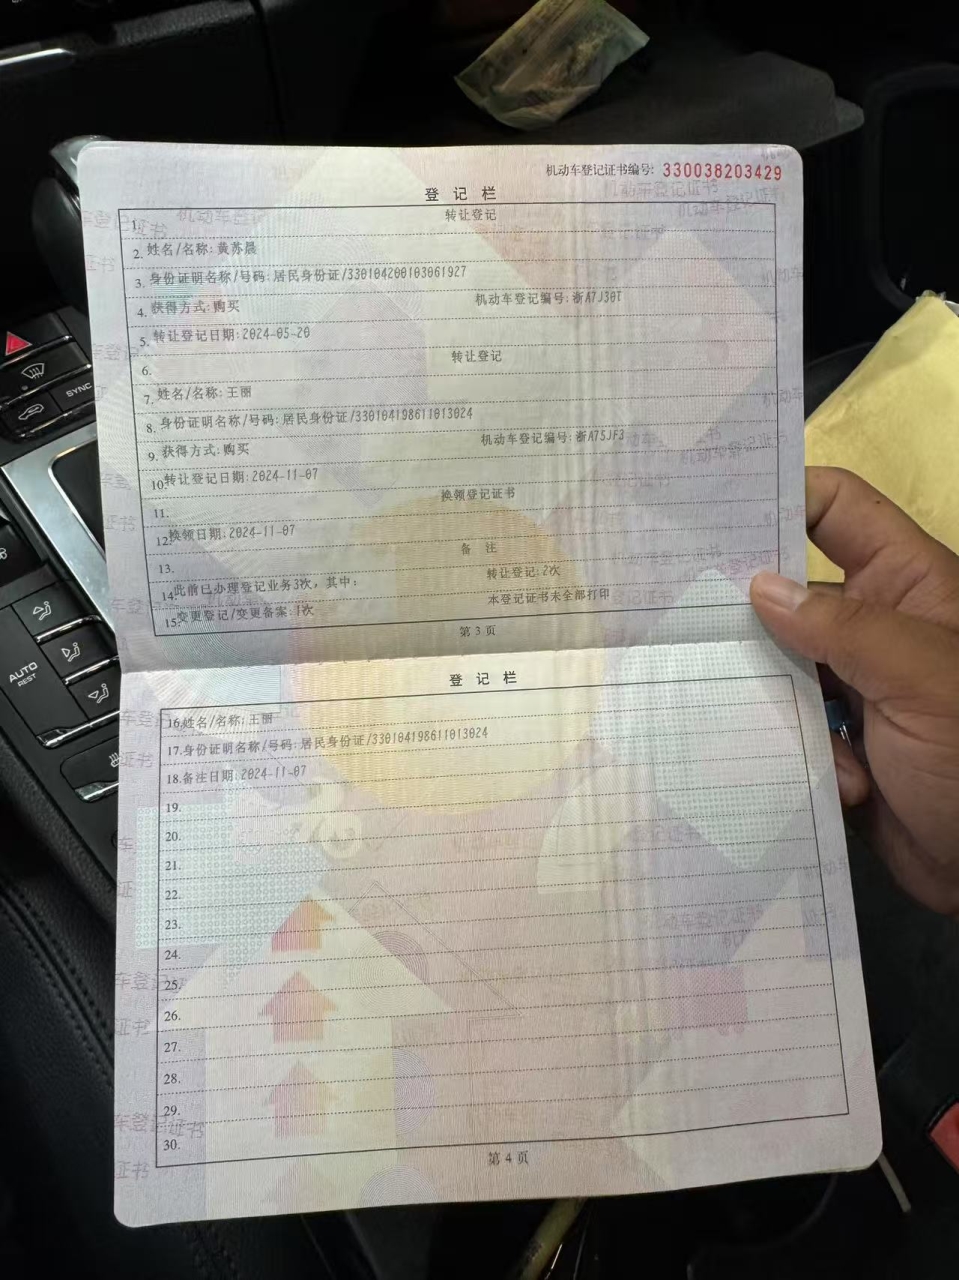 机动车登记证书编号: 330038203429
登记栏
1. 转让登记
2. 姓名/名称: 黄苏晨
3. 身份证明名称/号码: 居民身份证/330104200103061927
4. 获得方式: 购买 机动车登记编号: 浙A7J30T
5. 转让登记日期: 2024-05-20
6. 转让登记
7. 姓名/名称: 王丽
8. 身份证明名称/号码: 居民身份证/330104198611013024
9. 获得方式: 购买 机动车登记编号: 浙A75JF3
10. 转让登记日期: 2024-11-07
11. 换领登记证书
12. 换领日期: 2024-11-07
13. 备 注
14. 此前已办理登记业务3次，其中: 转让登记: 2次
15. 变更登记/变更备案: 1次 本登记证书未全部打印
第 3 页
登记栏
16. 姓名/名称: 王丽
17. 身份证明名称/号码: 居民身份证/330104198611013024
18. 备注日期: 2024-11-07
19.
20.
21.
22.
23.
24.
25.
26.
27.
28.
29.
30.
第 4 页
SYNC
AUTO
REST